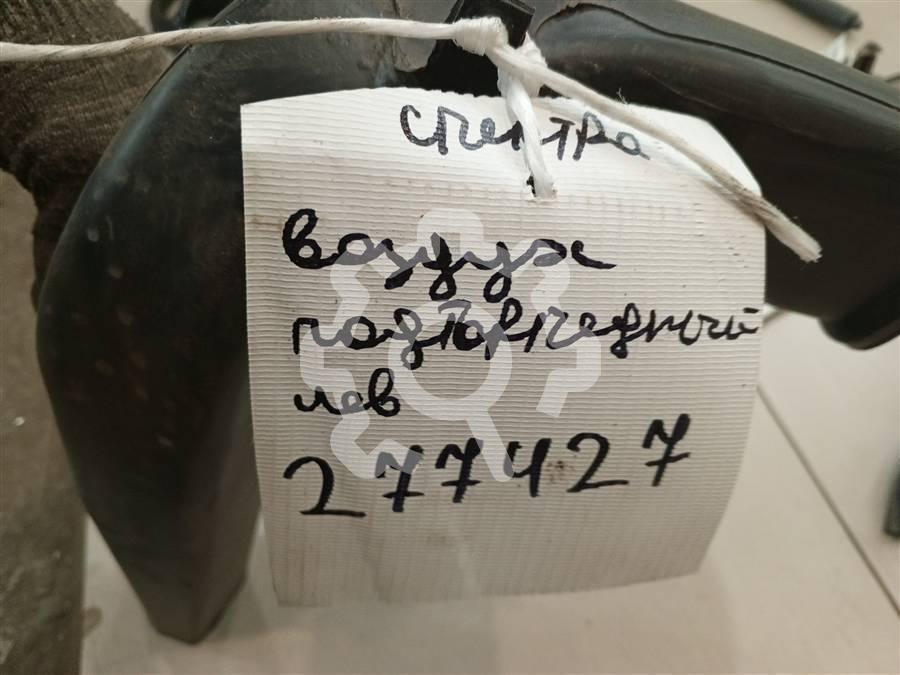 спектра
Воздух
подторпедный
лев
277427